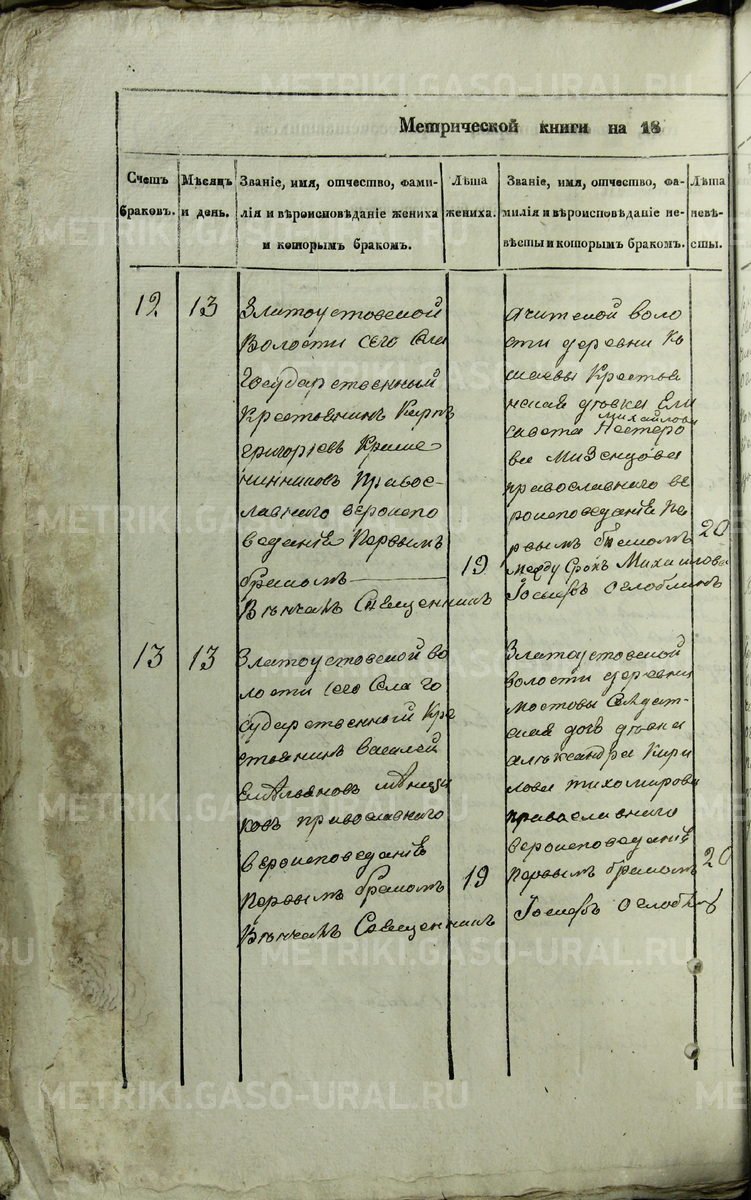 METRIKI.GASO-URAL.RU
Метрической книги на 18
Счетъ браковъ.
Мѣсяцъ и день.
Званіе, имя, отчество, фами-
лія и вѣроисповѣданіе жениха
и которымъ бракомъ.
Лѣта жениха.
Званіе, имя, отчество, фа-
милія и вѣроисповѣданіе не-
вѣсты и которымъ бракомъ.
Лѣта невѣ-
сты.
12
13
Златоустовской
Волости сего Села
Государственный
Крестьянинъ Карпъ
Григорьевъ Краше
нинниковъ Правос-
лавнаго вероиспо
веданіе Первымъ
бракомъ
19
Вѣнчалъ Священникъ
Ачитской воло
сти деревни
Крестья
нская дѣвка Ели
савета Михайлова
Нестеро
ва Мизенцова
православнаго ве
роисповеданіе Пе
рвымъ бракомъ
20
Михайлова
Іосифъ Оглоблинъ
13
13
Златоустовской во
лости сего Села го
сударственный Кре
стьянинъ Василей
Емѣльяновъ
ковъ православнаго
вероисповеданіе
Первымъ бракомъ
19
Вѣнчалъ Священникъ
Златоустовской
волости деревни
Мостовы Салдат-
ская дочь дѣвка
Александра Кири
лова Тихомирова
православнаго
вероисповеданіе
Первымъ бракомъ
20
Іосифъ Оглоблинъ